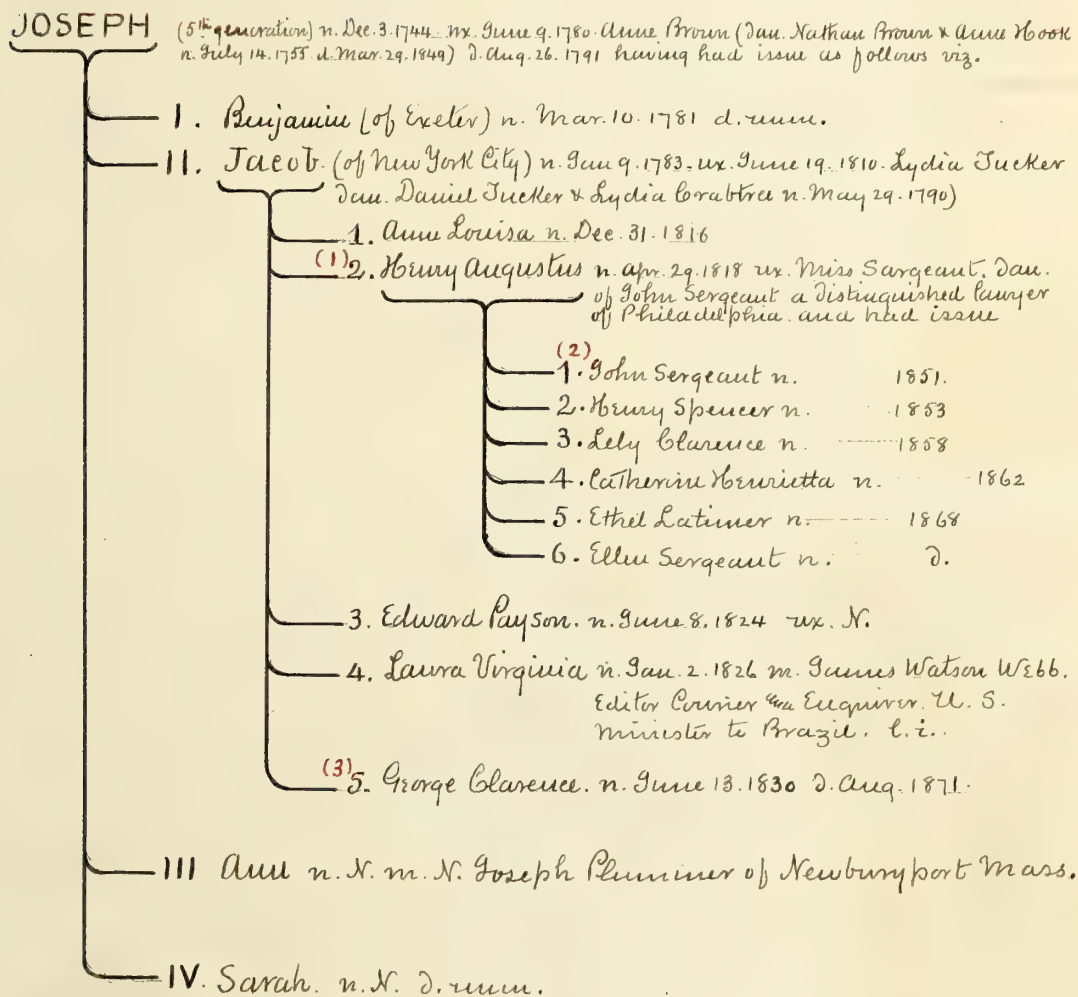 JOSEPH (5th generation) n. Dec. 3. 1744. ux. June 9. 1780. Anne Brown (Dau. Nathan Brown & Anne Hook
n. July 14. 1755. d. Mar. 29. 1849) d. Aug. 26. 1791 having had issue as follows viz.
I. Benjamin (of Exeter) n. Mar. 10. 1781 d. unm.
II. Jacob. (of New York City) n. Jan 9. 1783. ux. June 19. 1810. Lydia Tucker
Dau. Daniel Tucker & Lydia Crabtree n. May 29. 1790)
1. Anne Louisa n. Dec. 31. 1816
(1) 2. Henry Augustus n. apr. 29. 1818 ux. Miss Sargeant. Dau.
of John Sergeant a Distinguished lawyer
of Philadelphia. and had issue
(2)
1. John Sergeant n. 1851.
2. Henry Spencer n. 1853
3. Lely Clarence n. 1858
4. Catherine Henrietta n. 1862
5. Ethel Latimer n. 1868
6. Ellen Sergeant n. d.
3. Edward Payson. n. June 8. 1824 ux. N.
4. Laura Virginia n. Jan. 2. 1826 m. James Watson Webb.
Editor Courier Enquirer. U. S.
Minister to Brazil. l. i..
(3) 5. George Clarence. n. June 13. 1830 d. Aug. 1871.
III Ann n. N. m. N. Joseph Plummer of Newburyport Mass.
IV. Sarah. n. N. d. unm.